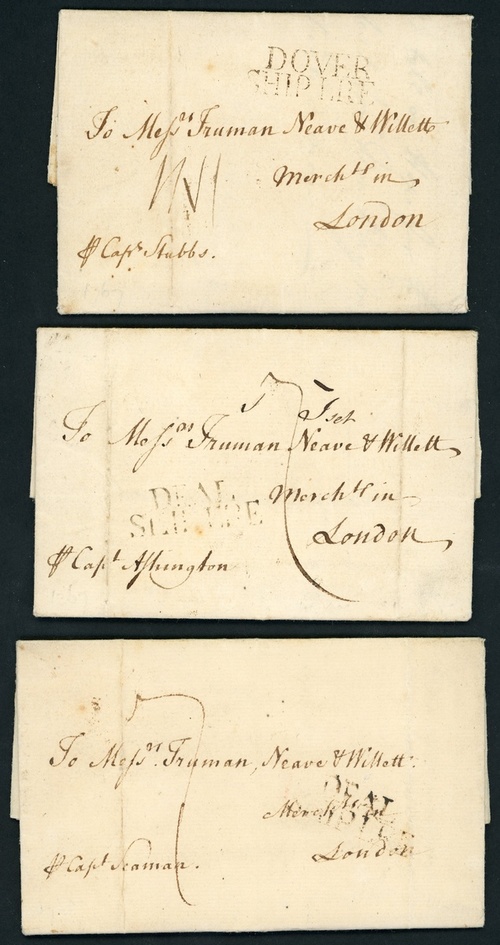 DOVER
SHIP LRE
To Messrs Truman Neave & Willett
Merchts in
London
⅌ Capt Stubbs.
To Messrs Truman Neave & Willett
DEAL
SHIP LRE
Merchts in
London
⅌ Capt Ashington
7
To Messrs. Truman, Neave & Willett.
DEAL
Merchts in
London
⅌ Capt Seaman.